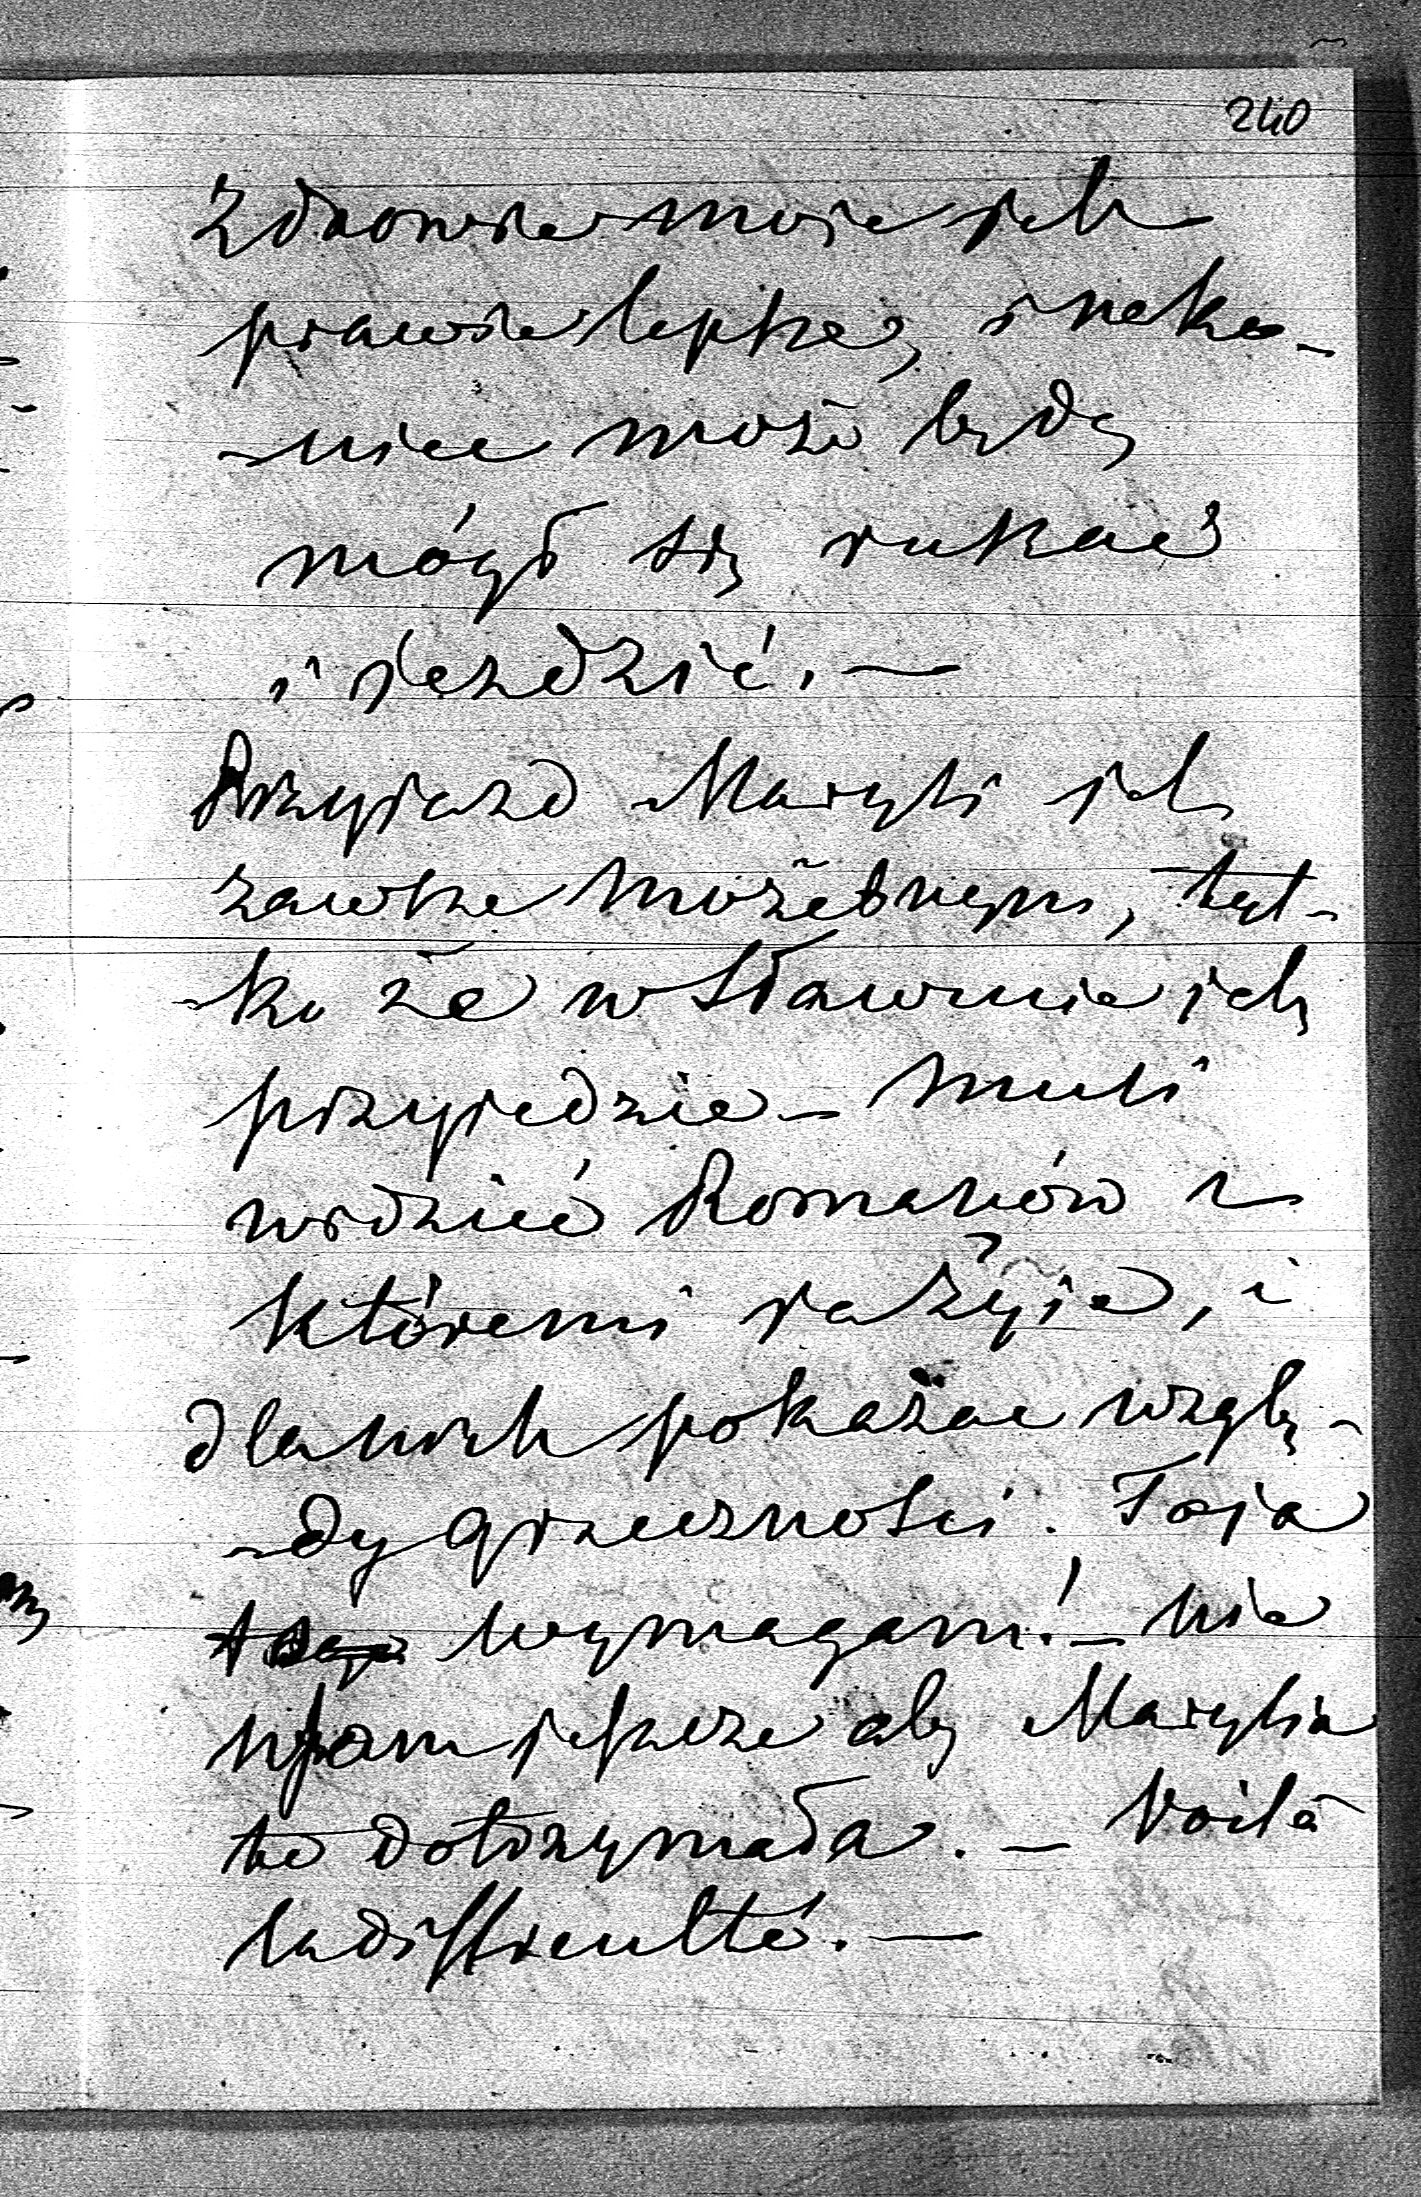 240
Zdrowie moie jest
prawie lepsze, i neko-
-niec może będę
mógł się rukać
i jezdzić. —
Przyjazd Maryli jest
zawsze możebnym, tyl-
-ko że w Sławucie jeśli
przyjedzie – musi
widzieć Romanów z
któremi ja żyję, i
dla nich pokazać wzglę-
-dy grzeczności. To ja
wymagam! – nie
ufam jeszcze aby Marylia
to dotrzymała. – Voilà
la difficulté. —